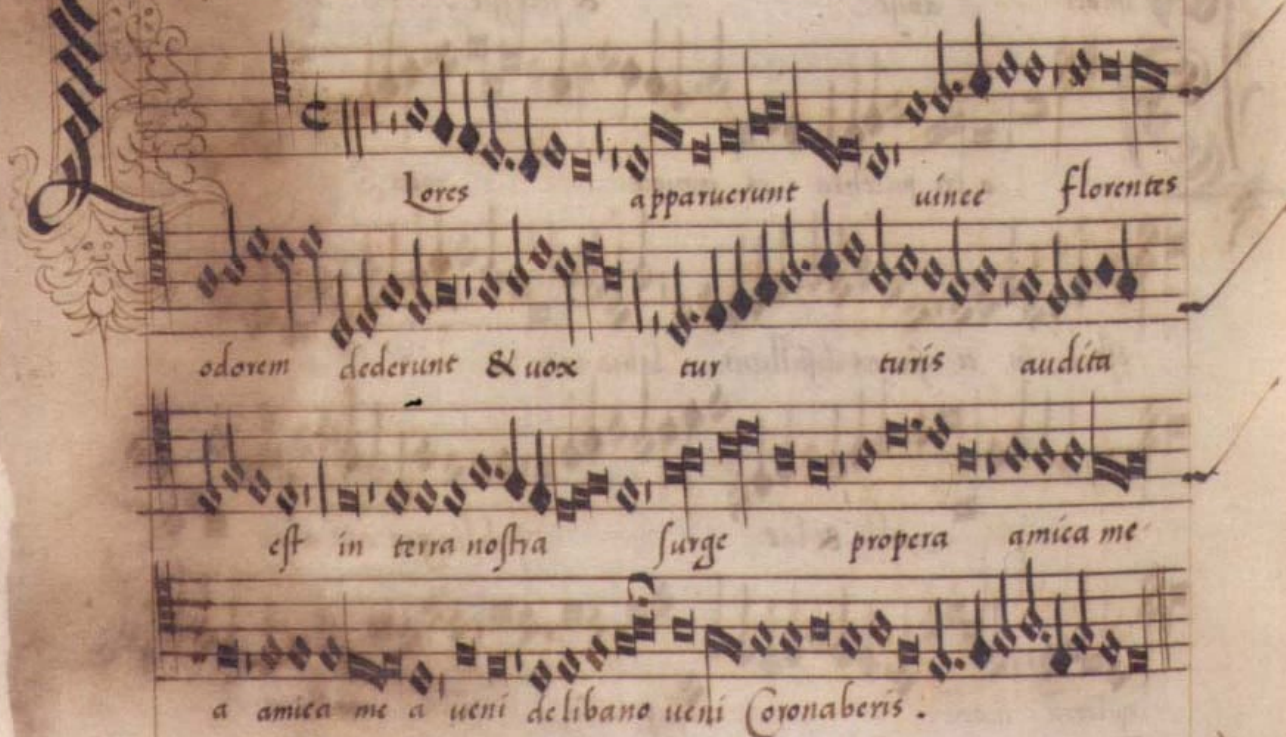 Lores apparuerunt uinee florentes
odorem dederunt & uox tur turis audita
est in terra nostra surge propera amica me
a amica me a ueni de libano ueni Coronaberis .